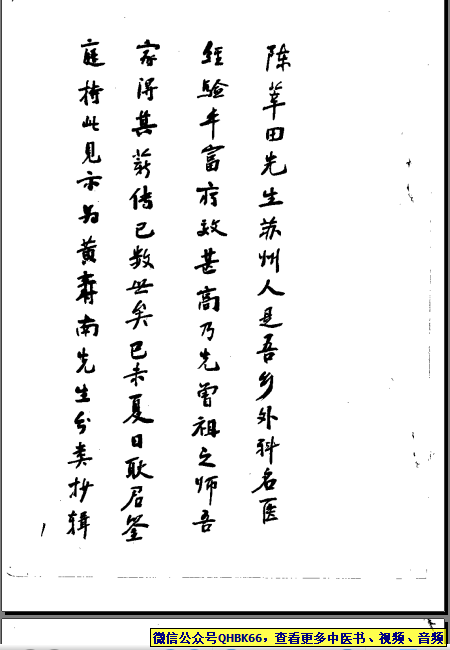 陈莘田先生苏州人是吾乡外科名医
经验丰富疗效甚高乃先曾祖之师吾
家得其薪传已数世矣己未夏日耿君鉴
庭持此见示为黄寿南先生分类抄辑
1
微信公众号QHBK66，查看更多中医书、视频、音频